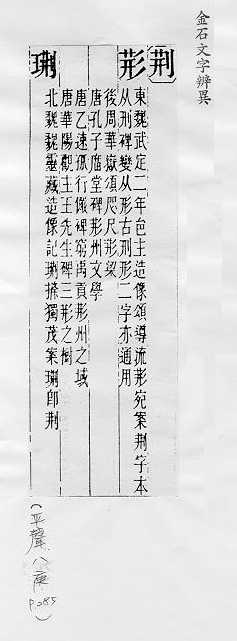 金石文字辨異
荆
形
東魏武定二年邑主造像頌導流形宛案荆字本
从刑碑變从形古刑形二字亦通用
後周華嶽頌咫尺形梁
唐孔子廟堂碑形州文學
唐乙速孤行儼碑窮禹貢形州之域
唐華陽觀主王先生碑三形之樹
琍
北魏魏靈藏造像記琍條獨茂案琍即荆
(平聲八庚 P285)